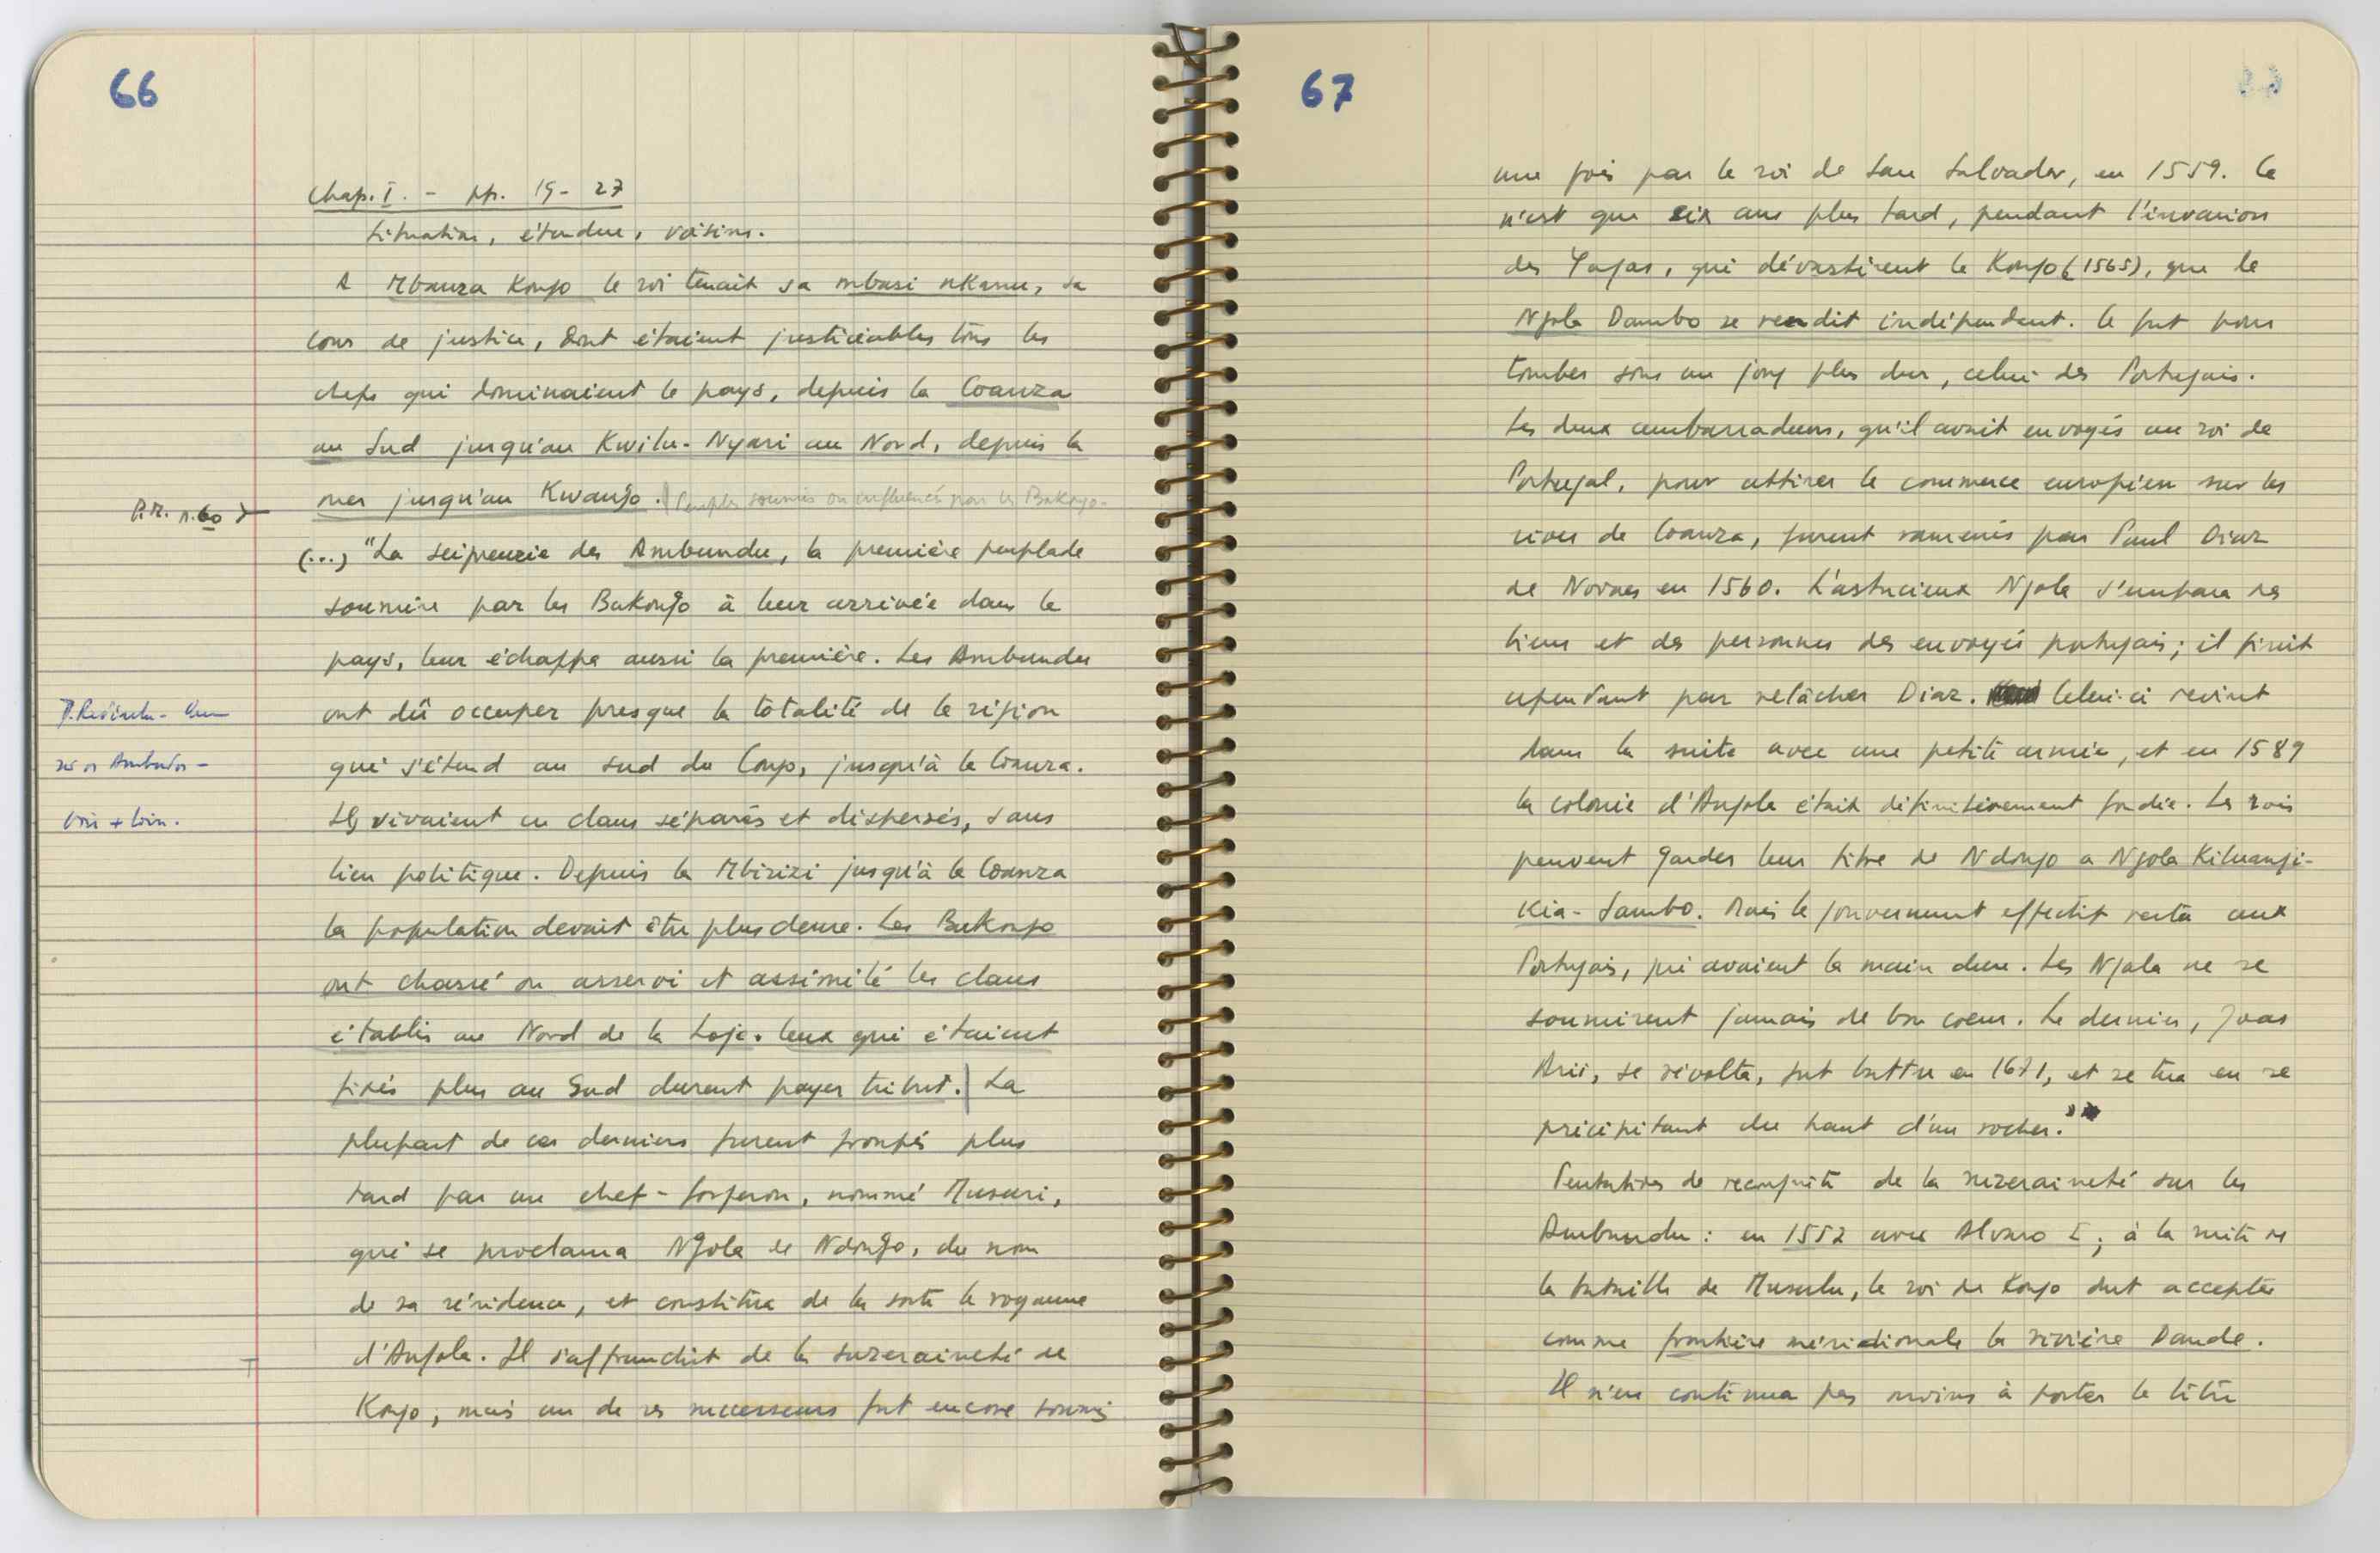 66
Chap. I. - pp. 19-27
Situation, étendue, voisins.
A Mbanza Kongo le roi tenait sa mbasi nkanu, sa
cour de justice, dont étaient justiciables tous les
chefs qui dominaient le pays, depuis la Coanza
au Sud jusqu'au Kwilu-Nyari au Nord, depuis la
mer jusqu'au Kwango. Peuples soumis ou influencés par les Bakongo-
P.R. n. 60
(...) "La seigneurie des Ambundu, la première peuplade
soumise par les Bakongo à leur arrivée dans le
pays, leur échappa aussi la première. Les Ambundu
ont dû occuper presque la totalité de la région
qui s'étend au sud du Congo, jusqu'à la Coanza.
Ils vivaient en clans séparés et dispersés, sans
lien politique. Depuis la Mbirizi jusqu'à la Coanza
la population devait être plus dense. Les Bakongo
ont chassé ou asservi et assimilé les clans
établis au Nord de la Loje. Ceux qui étaient
fixés plus au Sud durent payer tribut. La
plupart de ces derniers furent groupés plus
tard par un chef-forgeron, nommé Musuri,
qui se proclama Ngola de Ndongo, du nom
de sa résidence, et constitua de la sorte le royaume
d'Angola. Il s'affranchit de la suzeraineté de
Kongo, mais un de ses successeurs fut encore soumis
Ambundos -
voir + loin.
67
une fois par le roi de San Salvador, en 1559. Ce
n'est que six ans plus tard, pendant l'invasion
des Yagas, qui dévastèrent le Kongo (1565), que le
Ngola Dambo se rendit indépendant. Ce fut pour
tomber sous un joug plus dur, celui des Portugais.
Les deux ambassadeurs, qu'il avait envoyés au roi de
Portugal, pour attirer le commerce européen sur les
rives de Coanza, furent ramenés par Paul Diaz
de Novaes en 1560. L'astucieux Ngola s'empara des
biens et des personnes des envoyés portugais; il finit
cependant par relâcher Diaz. Celui-ci revint
dans la suite avec une petite armée, et en 1589
la colonie d'Angola était définitivement fondée. Les rois
peuvent garder leur titre de Ndongo a Ngola Kiluangi-
Kia-Sambo. Mais le gouvernement effectif resta aux
Portugais, qui avaient la main dure. Les Ngola ne se
soumirent jamais de bon coeur. Le dernier, Joao
Arii, se révolta, fut battu en 1671, et se tua en se
précipitant du haut d'un rocher."
Tentatives de reconquête de la suzeraineté sur les
Ambundu: en 1552 avec Alvaro I; à la suite de
la bataille de Musulu, le roi de Kongo dut accepter
comme frontière méridionale la rivière Dande.
Il n'en continua pas moins à porter le titre